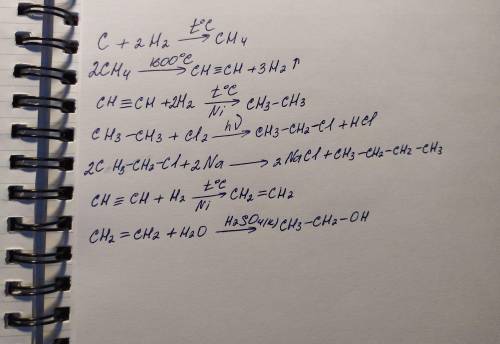 C + 2H₂ —t°C→ CH₄
2CH₄ —1600°C→ CH≡CH + 3H₂↑
CH≡CH + 2H₂ —t°C, Ni→ CH₃-CH₃
CH₃-CH₃ + Cl₂ —hν→ CH₃-CH₂-Cl + HCl
2CH₃-CH₂-Cl + 2Na → 2NaCl + CH₃-CH₂-CH₂-CH₃
CH≡CH + H₂ —t°C, Ni→ CH₂=CH₂
CH₂=CH₂ + H₂O —H₂SO₄(к)→ CH₃-CH₂-OH